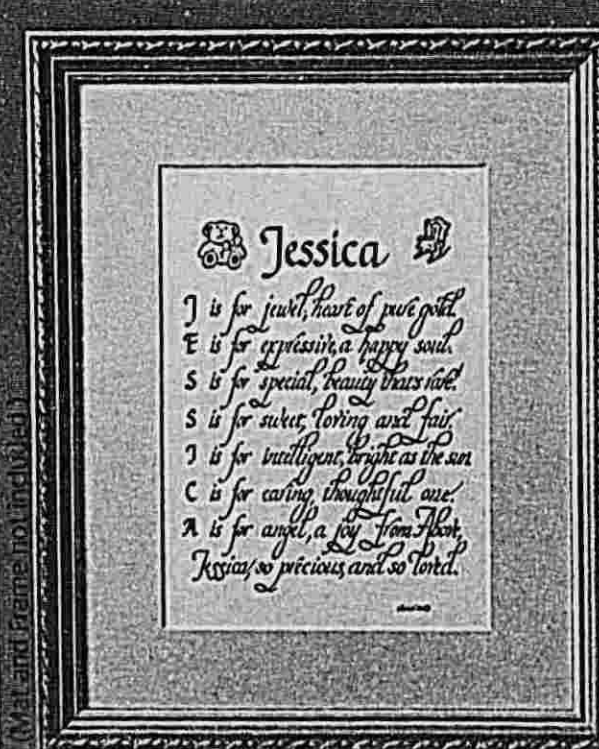 Jessica
J is for jewel, heart of pure gold.
E is for expressive, a happy soul.
S is for special, beauty thats rare.
S is for sweet, loving and fair.
I is for intelligent, bright as the sun
C is for caring, thoughtful one.
A is for angel, a joy from Above,
Jessica, so precious, and so loved.
(Mat and Frame not included)